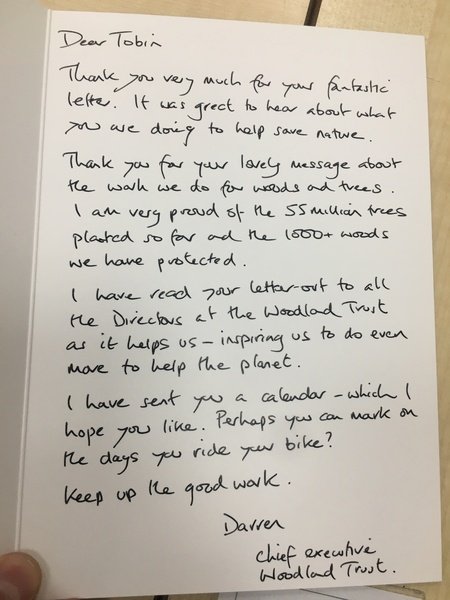 Dear Tobin
Thank you very much for your fantastic
letter. It was great to hear about what
you are doing to help save nature.
Thank you for your lovely message about
the work we do for woods and trees.
I am very proud of the 55 million trees
planted so far and the 1000+ woods
we have protected.
I have read your letter out to all
the Directors at the Woodland Trust
as it helps us – inspiring us to do even
more to help the planet.
I have sent you a calendar – which I
hope you like. Perhaps you can mark on
the days you ride your bike?
Keep up the good work.
Darren
Chief executive
Woodland Trust.